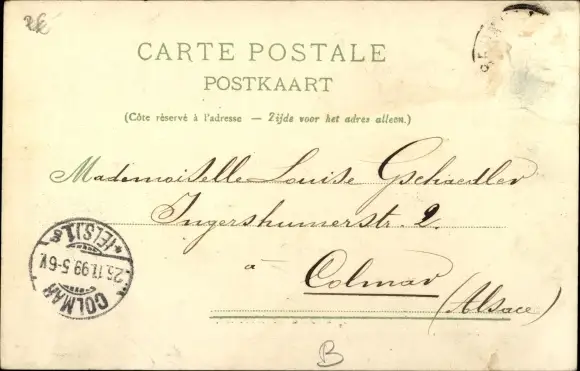 CARTE POSTALE
POSTKAART
(Côte réservé à l'adresse — Zijde voor het adres alleen.)
Mademoiselle Louise Gschaedler
Ingersheimerstr. 2.
à Colmar
(Alsace)
COLMAR
25.11.99.5-6V.
*(ELS.)1g
B